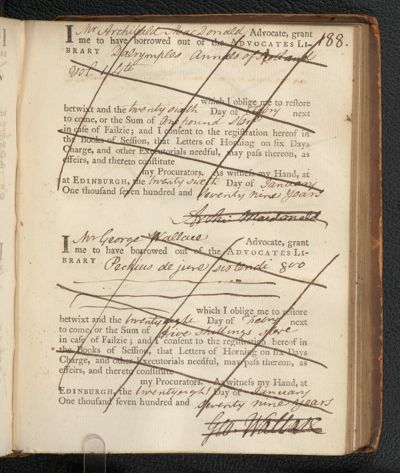 188.
I Mr Archibald MacDonald Advocate, grant
me to have borrowed out of the ADVOCATES LI-
BRARY Dalrymples Annals of Scotland
Vol. 1
which I oblige me to restore
betwixt and the twenty sixth Day of next
to come, or the Sum of One pound
in case of Failzie; and I consent to the registration hereof in
the Books of Session, that Letters of Horning on six Days
Charge, and other Executorials needful, may pass thereon, as
effeirs, and thereto constitute
my Procurators. As witness my Hand, at
at EDINBURGH, the twenty sixth Day of January
One thousand seven hundred and seventy nine years
Archd. Macdonald
I Mr George Wallace Advocate, grant
me to have borrowed out of the ADVOCATES LI-
BRARY Peckius de jure sistendi 8vo
which I oblige me to restore
betwixt and the twenty eight Day of next
to come, or the Sum of five shillings
in case of Failzie; and I consent to the registration hereof in
the Books of Session, that Letters of Horning on six Days
Charge, and other Executorials needful, may pass thereon, as
effeirs, and thereto constitute
my Procurators. As witness my Hand, at
EDINBURGH, the twenty eight Day of January
One thousand seven hundred and seventy nine years
Geo. Wallace